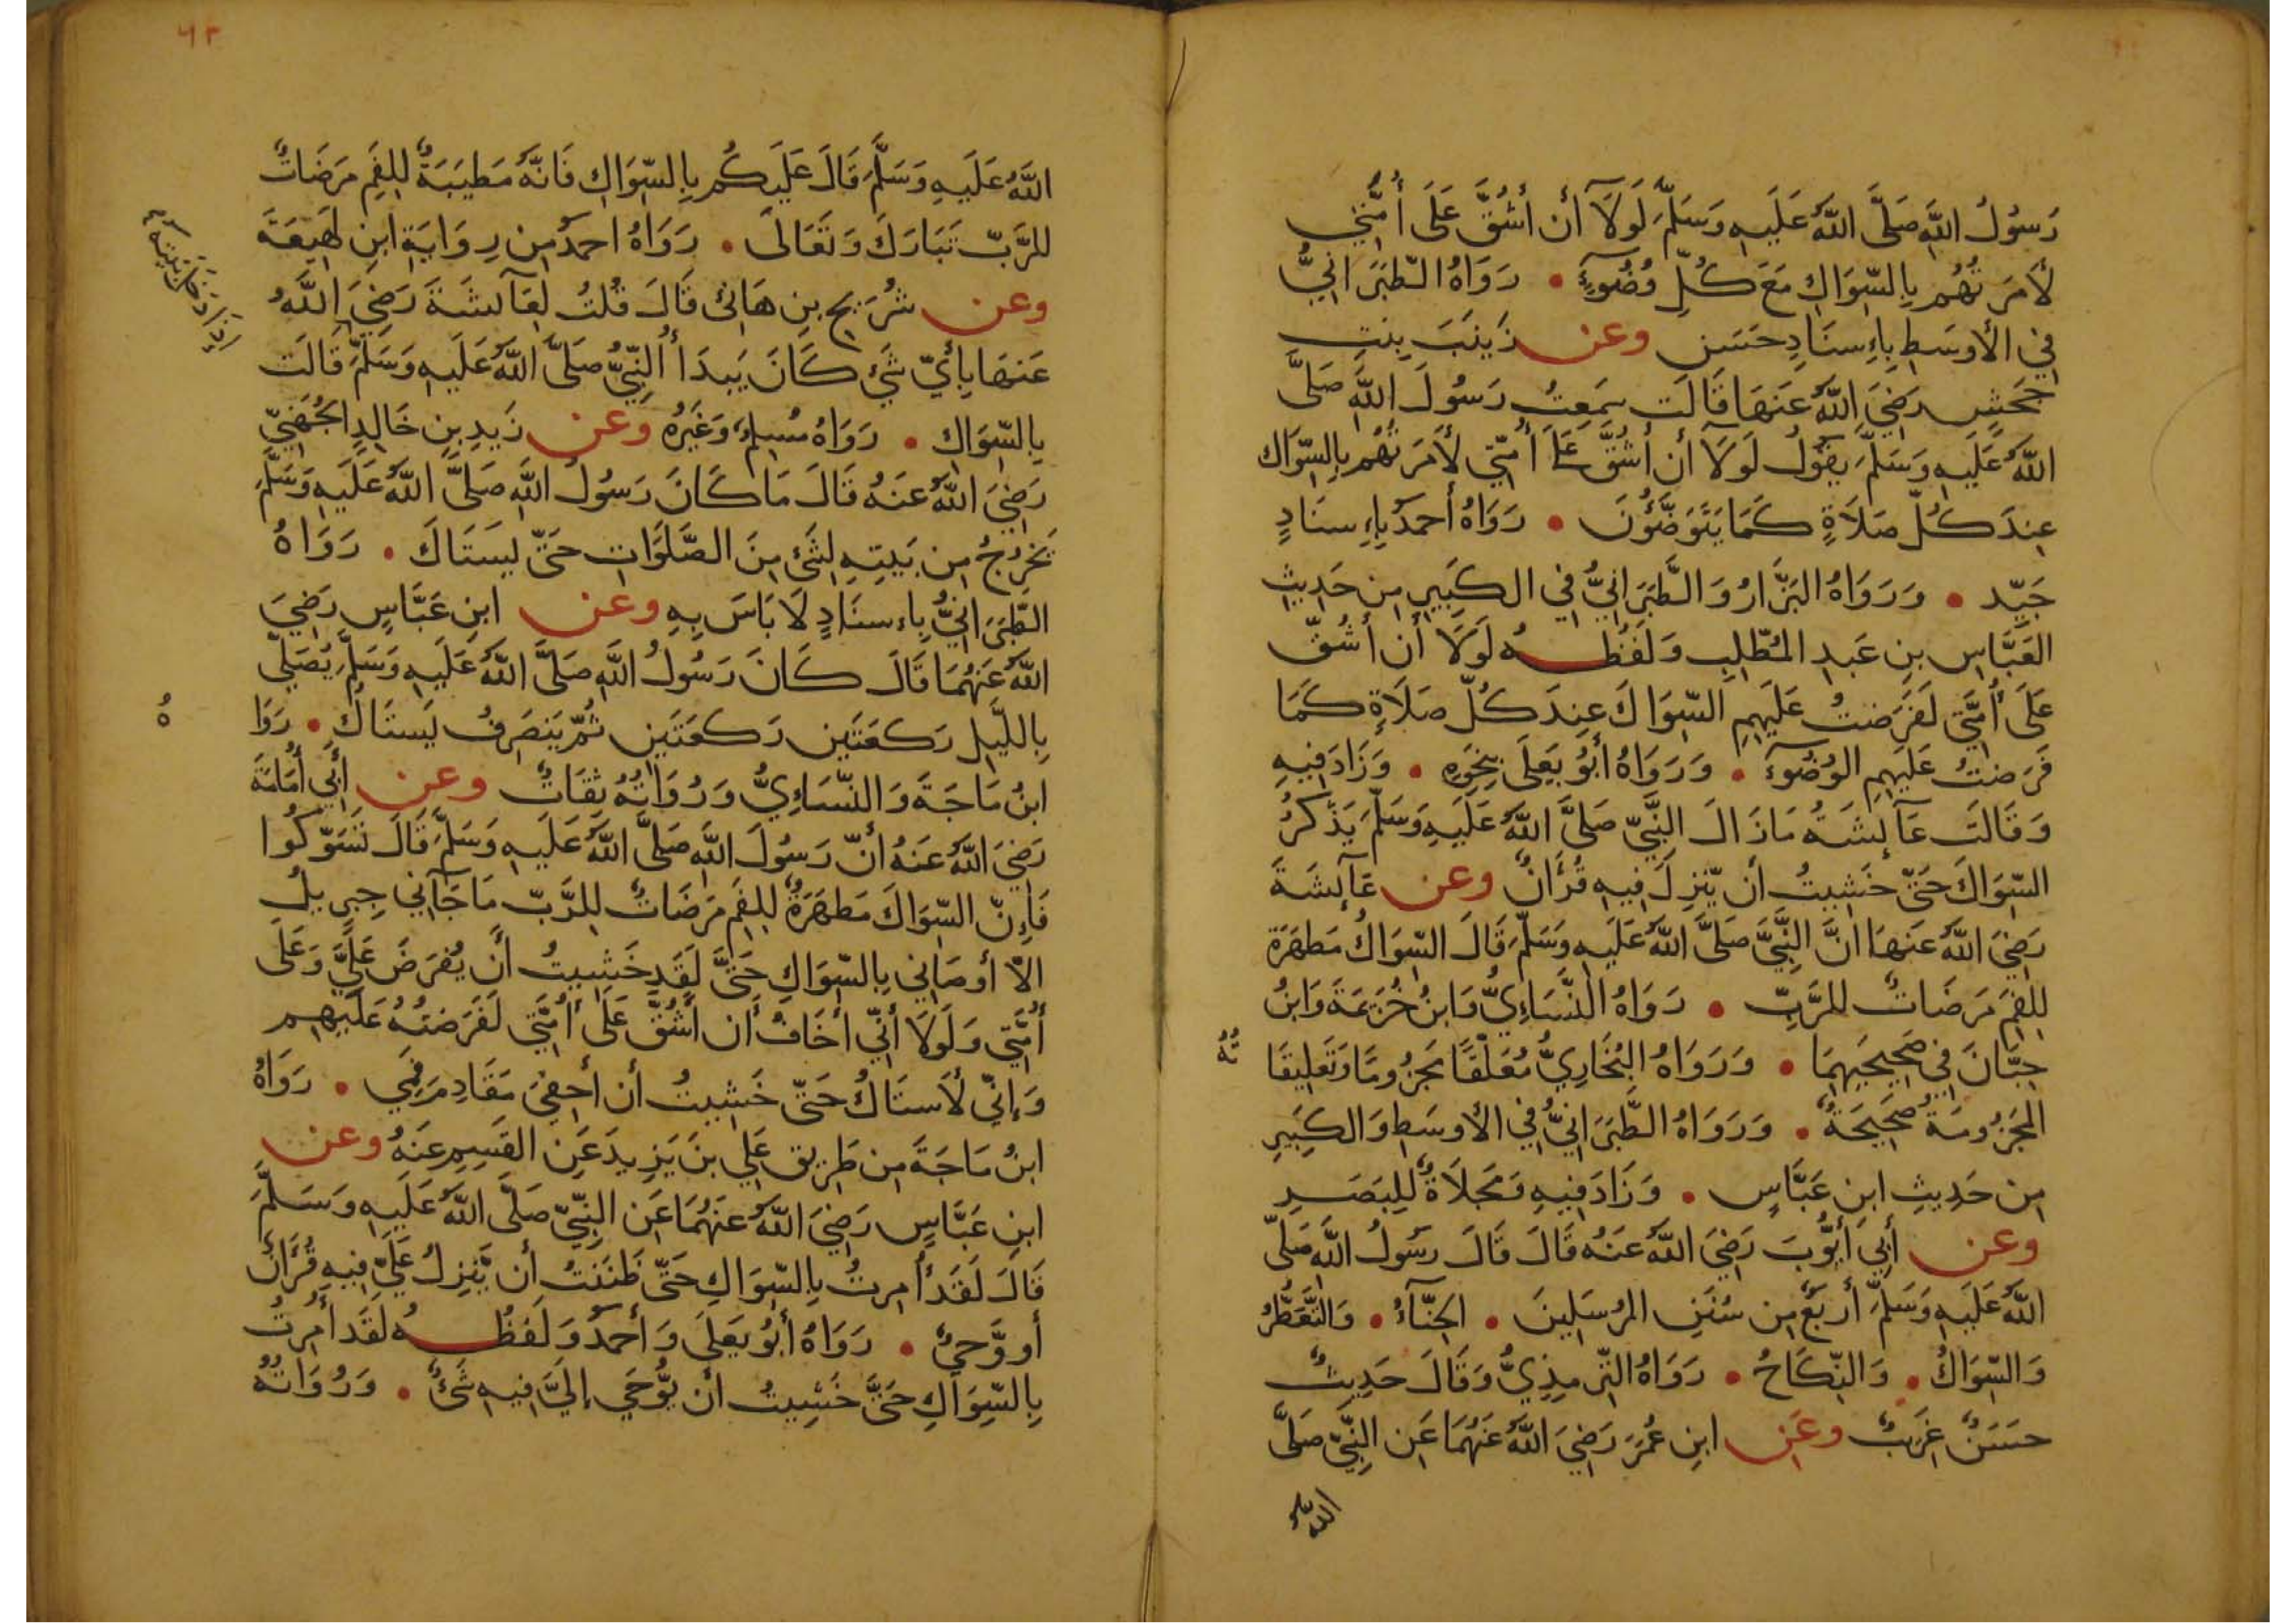 رَسُولُ اللَّهِ صَلَّى اللَّهُ عَلَيهِ وَسَلَّمَ لَولَآ أَن أَشُقَّ عَلَى أُمَّتِي
لَأَمَرتُهُم بِالسِّوَاكِ مَعَ كُلِّ وُضُوٓءٍ • رَوَاهُ الطَّبَرَانِيُّ
فِي الأَوسَطِ بِإِسنَادٍ حَسَنٍ وعن زَينَبَ بِنتِ
جَحَشٍ رَضِيَ اللَّهُ عَنهَا قَالَت سَمِعتُ رَسُولَ اللَّهِ صَلَّى
اللَّهُ عَلَيهِ وَسَلَّمَ يَقُولُ لَولَآ أَن أَشُقَّ عَلَى أُمَّتِي لَأَمَرتُهُم بِالسِّوَاكِ
عِندَ كُلِّ صَلَاةٍ كَمَا يَتَوَضَّؤُنَ • رَوَاهُ أَحمَدُ بِإِسنَادٍ
جَيِّد • وَرَوَاهُ البَزَّارُ وَالطَّبَرَانِيُّ فِي الكَبِيرِ مِن حَدِيثِ
العَبَّاسِ بنِ عَبدِ المُطَّلِبِ وَلَفظُهُ لَولَا أَن أَشُقَّ
عَلَى أُمَّتِي لَفَرَضتُ عَلَيهِمِ السِّوَاكَ عِندَ كُلِّ صَلَاةٍ كَمَا
فَرَضتُ عَلَيهِمِ الوُضُوٓءَ • وَرَوَاهُ أَبُو يَعلَى بِنَحوِهِ • وَزَادَ فِيهِ
وَقَالَت عَآئِشَةُ مَازَالَ النَّبِيّ صَلَّى اللَّهُ عَلَيهِ وَسَلَّمَ يَذكُرُ
السِّوَاكَ حَتَّى خَشِيتُ أَن يَّنزِلَ فِيهِ قُرءَانٌ وعن عَآئِشَةَ
رَضِيَ اللَّهُ عَنهَا انَّ النَّبِيَّ صَلَّى اللَّهُ عَلَيهِ وَسَلَّمَ قَالَ السِّوَاكُ مَطهَرَة
لِلفَمِ مَرضَاتٌ للرَّبِّ • رَوَاهُ النَّسَائِيُّ وَابنُ خُزَيمَةَ وَابنُ
حِبَّانَ فِي صَحِيحَيهِمَا • وَرَوَاهُ البُخَارِيُّ مُعَلَّقًا مَجزُومًا وَتَعلِيقَا
تُهُ
المَجزُومَةُ صَحِيحَةٌ • وَرَوَاهُ الطَّبَرَانِيُّ فِي الأَوسَطِ وَالكَبِيرِ
مِن حَدِيثِ ابنِ عَبَّاسٍ • وَزَادَ فِيهِ وَمَجلَاةٌ لِلبَصَرِ
وعن أَبِي أَيُّوبَ رَضِيَ اللَّهُ عَنهُ قَالَ قَالَ رَسُولُ اللَّهِ صَلَّى
اللَّهُ عَلَيهِ وَسَلَّمَ أَربَعٌ مِن سُنَنِ المُرسَلِينَ • الحِنَّآءُ • وَالتَّعَطُّرُ
وَالسِّوَاكُ • وَالنِّكَاحُ • رَوَاهُ التِّرمِذِيُّ وَقَالَ حَدِيثٌ
حَسَنٌ غَرِيبٌ وعن ابنِ عُمَرَ رَضِيَ اللَّهُ عَنهُمَا عَنِ النَّبِيِّ صَلَّى
اللَّهُ
٦٢
اللَّهُ عَلَيهِ وَسَلَّمَ قَالَ عَلَيكُم بِالسِّوَاكِ فَانَّهُ مَطيَبَةٌ لِلفَمِ مَرضَاتٌ
للرَّبِّ تَبَارَكَ وَتَعَالَى • رَوَاهُ احمَدُ مِن رِوَايَةِ ابنِ لَهِيعَةَ
وعن شُرَيحِ بنِ هَانِئ قَالَ قُلتُ لِعَآئشَةَ رَضِيَ اللَّهُ
عَنهَا بِأَيِّ شَئ كَانَ يَبدَأُ النَّبِيُّ صَلَّى اللَّهُ عَلَيهِ وَسَلَّمَ قَالَت
إِذَا دَخَلَ بَيتَهُ
بِالسِّوَاكِ • رَوَاهُ مُسلِمٌ وَغَيرُهُ وعن زَيدِ بنِ خَالِدٍ الجُهَنِيِّ
رَضِيَ اللَّهُ عَنهُ قَالَ مَا كَانَ رَسُولُ اللَّهِ صَلَّى اللَّهُ عَلَيهِ وَسَلَّمَ
يَخرُجُ مِن بَيتِهِ لِشَئ مِنَ الصَّلَوَاتِ حَتَّى يَستَاكَ • رَوَاهُ
الطَّبَرَانِيُّ بِاِسنَادٍ لَا بَاسَ بِهِ وعن ابنِ عَبَّاسٍ رَضِيَ
اللَّهُ عَنهُمَا قَالَ كَانَ رَسُولُ اللَّهِ صَلَّى اللَّهُ عَلَيهِ وَسَلَّمَ يُصَلِّي
بِاللَّيلِ رَكعَتَينِ رَكعَتَينِ ثُمَّ يَنصَرِفُ يَستَاكُ • رَوَا
هُ
ابنُ مَاجَةَ وَالنَّسَاءِيُّ وَرُوَاتُهُ ثِقَاتٌ وعن أَبِي أُمَامَةَ
رَضِيَ اللَّهُ عَنهُ أَنَّ رَسُولَ اللَّهِ صَلَّى اللَّهُ عَلَيهِ وَسَلَّمَ قَالَ تَسَوَّكُوا
فَاِنَّ السِّوَاكَ مَطهَرَةٌ لِلفَمِ مَرضَاتٌ لِلرَّبِّ مَا جَآءَنِي جِبرِيلُ
الاَّ أَوصَانِي بِالسِّوَاكِ حَتَّى لَقَد خَشِيتُ أَن يُفرَضَ عَلَيَّ وَعَلَى
أُمَّتِي وَلَولَا أَنِّي أَخَافُ أَن أَشُقَّ عَلَى أُمَّتِي لَفَرَضتُهُ عَلَيهِم
وَإِنِّي لَأَستَاكُ حَتَّى خَشِيتُ أَن أُحفِيَ مَقَادِمَ فَمِي • رَوَاهُ
ابنُ مَاجَةَ مِن طَرِيقِ عَلِي بنَ يَزِيدَ عَنِ القَسِمِ عَنهُ وعن
ابنِ عَبَّاسٍ رَضِيَ اللَّهُ عَنهُمَا عَنِ النَّبِيِّ صَلَّى اللَّهُ عَلَيهِ وَسَلَّمَ
قَالَ لَقَد أُمِرتُ بِالسِّوَاكِ حَتَّى ظَنَنتُ أَن يَّنزِلَ عَلَيَّ فِيهِ قُرءَانٌ
أَو وَّحيٌ • رَوَاهُ أَبُو يَعلَى وَأَحمَدُ وَلَفظُهُ لَقَد أُمِرتُ
بِالسِّوَاكِ حَتَّى خَشِيتُ أَن يُّوحَي إِلَيَّ فِيهِ شَئٌ • وَرُوَاتُهُ